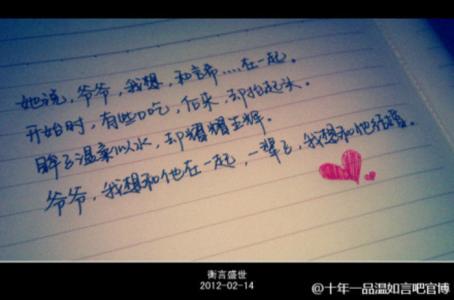 她说，爷爷，我想，和言希....在一起。
开始时，有些口吃，后来，却抬起头。
眸子温柔似水，却耀耀生辉。
爷爷，我想和他在一起，一辈子，我想和他结婚。
衡言盛世
2012-02-14
@十年一品温如言吧官博